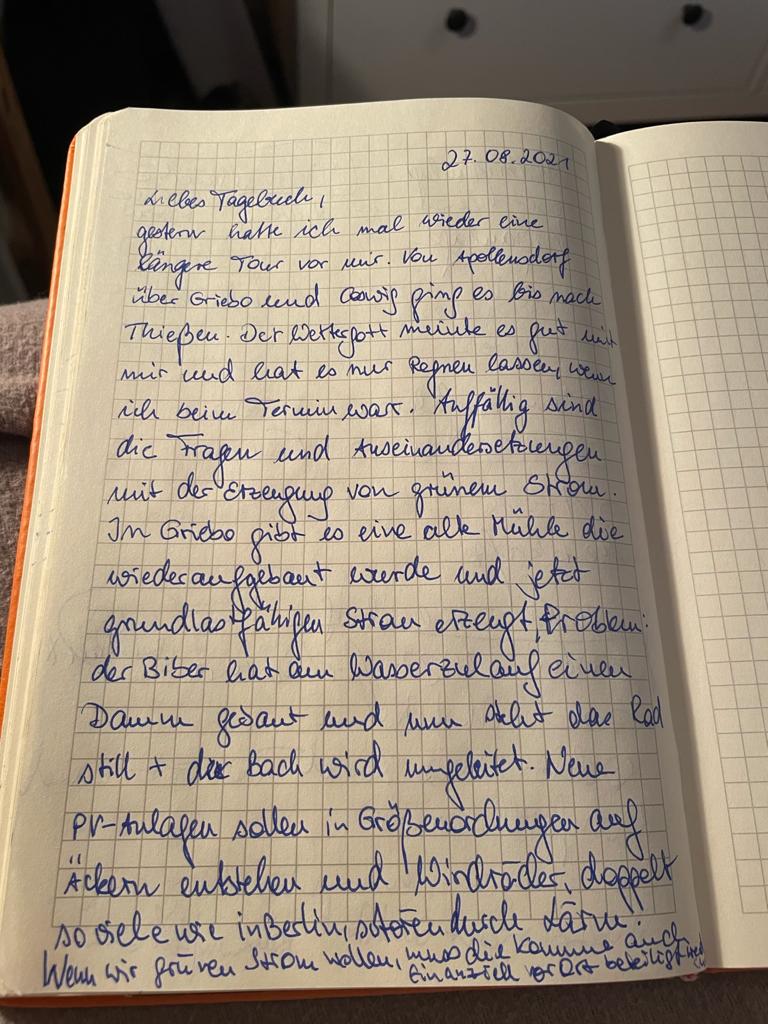 27.08.2021
Liebes Tagebuch,
gestern hatte ich mal wieder eine
längere Tour vor mir. Von Apollensdorf
über Griebo und Coswig ging es bis nach
Thießen. Der Wettergott meinte es gut mit
mir und hat es nur Regnen lassen, wenn
ich beim Termin war. Auffällig sind
die Fragen und Auseinandersetzungen
mit der Erzeugung von grünem Strom.
In Griebo gibt es eine alte Mühle die
wiederaufgebaut wurde und jetzt
grundlastfähigen Strom erzeugt, Problem:
der Biber hat am Wasserzulauf einen
Damm gebaut und nun steht das Rad
still + der Bach wird umgeleitet. Neue
PV-Anlagen sollen in Größenordnungen auf
Äckern entstehen und Windräder, doppelt
so viele wie in Berlin, stören durch Lärm.
Wenn wir grünen Strom wollen, muss die Kommune auch
finanziell vor Ort beteiligt